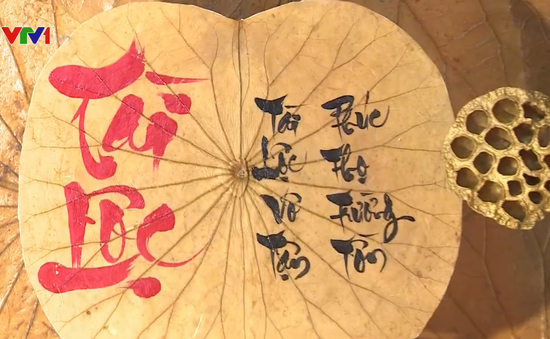 VTV1
Tài
Lộc
Tài Lộc Vô Tận
Phúc Thọ Trường Tồn